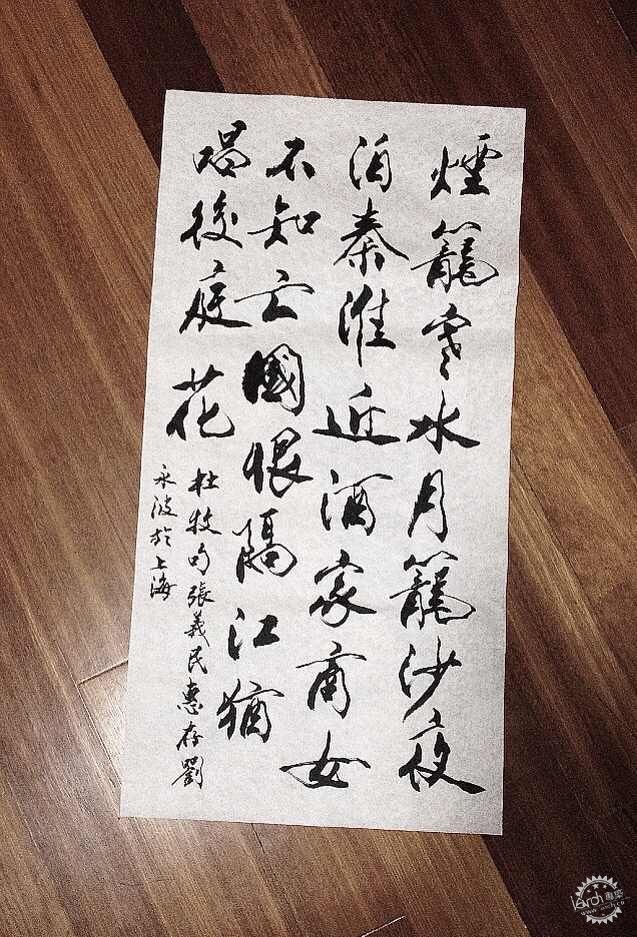 煙籠寒水月籠沙夜
泊秦淮近酒家商女
不知亡國恨隔江猶
唱後庭花
杜牧句張義民惠存劉
永波於上海
專築